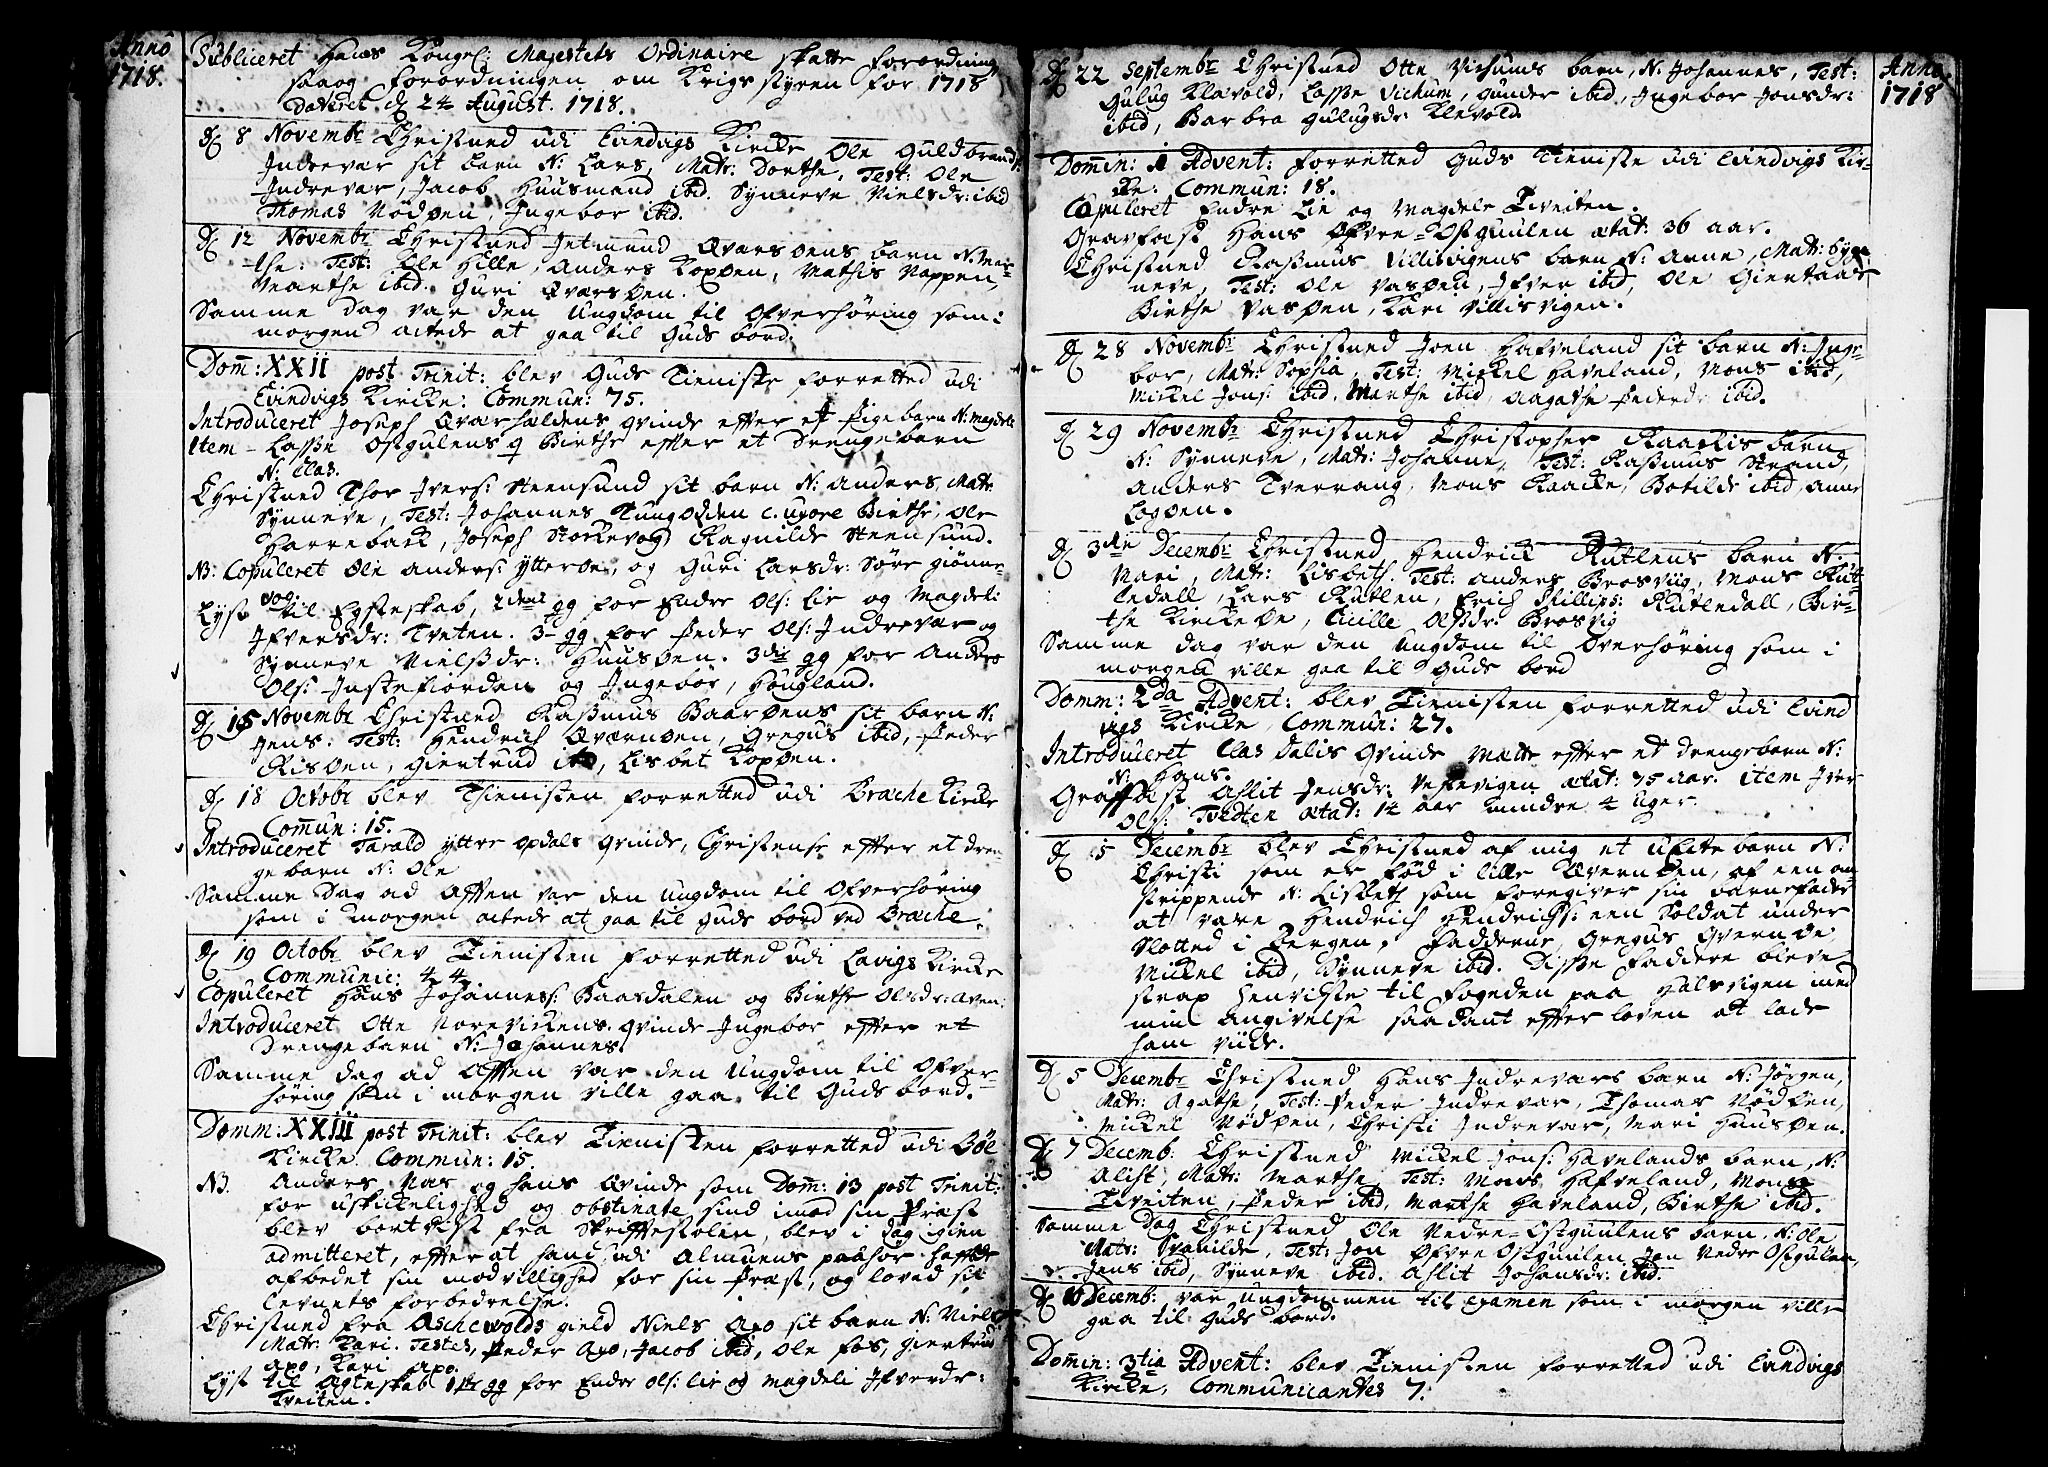 Anno
1718.
Publiceret Hans Kongel: Majestets Ordinaire skatte forordning
saaog forordningen om Krigs styren for 1718
Dateret d 24 August. 1718.
d 8 Novembr Christned udi Evindvigs Kircke Ole Guldbrands:
Indrevar sit barn N: Lars, Matr: Dorthe, Test: Ole
Indrevar, Jacob Huusmand ibid. Synneve Nielsdr: ibid
Thomas Nödöen, Ingebor ibid.
d 12 Novembr Christned Intmund Qvarsöens barn N: Mar-
the: Test: Ole Hille, Anders Kopöen, Mathis Nappen,
Marthe ibid. Guri Qvarsöen.
Samme Dag var den Ungdom til Ofverhöring som i
morgen actede at gaa til Guds bord.
Dom: XXII post Trinit: blev Guds Tieniste forretted udi
Evindvigs Kircke: Commun: 75.
Introduceret Joseph Qvarhaldens qvinde effter et Pigebarn N: Magdele
Item - Lasse Ostgulens q Birthe effter et Drengebarn
N: Clas.
Christned Thor Ivers: Steensund sit barn N: Anders, Matr
Synneve, Test: Johannes Tungodden c. uxore Birthe, Ole
Harreback, Joseph Storkevog Ragnilde Steensund.
NB: Copuleret Ole Anders: Ytteröe, og Guri Larsdr: Söre giönne-
vog.
Lyst til Egteskab, 2den gg for Endre Ols: Lie og Magdeli
Ifversdr: Tveten. 3- gg for Peder Ols: Indrevar og
Synneve Nielsdr: Huusöen. 3die gg for Anders
Ols: Instefiorden og Ingebor, Hougland.
d 15 Novembr Christned Rasmus Baaröens sit barn N:
Jens: Test: Hendrich Qværnöen, Gregus ibid, Peder
Risöen, Giertrud ibid, Lisbet Kopöen.
d 18 Octobr blev Tienisten forretted udi Brache Kircke
Comun: 15.
Introduceret Tarald Yttre Opdals qvinde, Christense effter et dren-
gebarn N: Ole
Samme Dag ad Afften var den Ungdom til Ofverhöring
som i morgen actede at gaa til Guds bord ved Brache.
d 19 Octobr blev Tienisten forretted udi Lavigs Kircke
Communic: 44
Copuleret Hans Johanness: Baardalen og Birthe Olsdr: Aven:
Introduceret Otte Norevikens qvinde Ingebor effter et
Drengebarn N: Johannes.
Samme Dag ad Afften var den Ungdom til Ofver-
höring som i morgen ville gaa til Guds bord.
Domm: XXIII post Trinit: blev Tienisten forretted udi Böe
Kircke Commun: 15.
NB. Anders Nas og hans Qvinde som Dom: 13 post Trinit:
for uskickelighed og obstinate sind imod sin Præst
blev bortvist fra Skrifftestolen, blev i Dag igien
admitteret, effter at hand udi Almuens paahör haffde
afbedet sin modvillighed for sin Præst, og loved sit
levnets forbedrelse.
Christned fra Aschevolds gield Niels Apo sit barn N: Niels
Matr: Kari. Testes, Peder Apo, Jacob ibid, Ole fos, Giertrud
Apo, Kari Apo.
Lyst til Egteskab 1ste gg for Endre Ols: Lie og Magdeli Ifversdr:
Tveiten.
Anno
1718
d 22 Septembr Christned Otte Vichums barn, N: Johannes, Test:
Gulug Klævold, Lasse Vichum, Gunder ibid, Ingebor Jonsdr:
ibid, Barbra Gulugsdr Klevold.
Domin: 1 Advent: forretted Guds Tieniste udi Evindvigs Kir-
ke: Commun: 18.
Copuleret Endre Lie og Magdele Tveiten.
Gravfæst Hans Öfvre-Ostguulen ætat: 36 aar.
Christned Rasmus Villisvigens barn N: Anne, Matr: Syn-
neve, Test: Ole Vasöen, Ifver ibid, Ole Giertaas
Birthe Vasöen, Kari Villisvigen.
d 28 Novembr Christned Joen Hafveland sit barn N: Inge-
bor, Matr: Sophia, Test: Mickel Haveland, Mons ibid,
Mickel Jons: ibid, Marthe ibid, Aagathe Pedersdr ibid.
d 29 Novembr Christned Christopher Raackis barn
N: Synneve, Matr: Johanne, Test: Rasmus Strand,
Anders Tverrang, Mons Raacke, Botilde ibid, Anne
Logöen.
d 3die Decembr Christned Hendrick Rutlens barn N.
Mari, Matr: Lisbeth. Test: Anders Brosviig, Mons Rut-
ledall, Lars Rutlen, Erich Phillips: Rutledall, Bir-
the Kirckeöe, Cicille Olsdr: Brosvig
Samme dag var den Ungdom til Overhöring som i
morgen ville gaa til Guds bord
Domm: 2da Advent: blev Tienisten forretted udi Evind
vigs Kircke, Commun: 27.
Introduceret Clas Dalis Qvinde Mætte effter et drengebarn N:
N: Hans.
Graffæst Aslit Jensdr: Nessevigen ætat: 75 aar. item Iver
Ols: Tvedten ætat: 14 aar mindre 4 uger.
d 5 Decembr blev Christned af mig et uEcte barn N:
Christi som er föd i lille Qvernöen, af een om-
strippende N: Lisbeth som foregiver sin barnefader
at være Hendrich Hendrichs: een Soldat under
Slotted i Bergen, Fadderne, Gregus Qvernöe
Mickel ibid, Synneve ibid. Disse Faddere bleve
strax henviste til fogeden paa Halsvigen med
min angivelse saadant effter loven at lade
ham viide.
d 5 Decembr Christned Hans Indrevars barn N: Jörgen,
Matr: Agathe, Test: Peder Indrevar, Thomas Nödöen,
Mickel Nödöen, Christi Indrevar, Mari Huusöen.
d 7 Decemb: Christned Mickel Jons: Havelands barn, N:
Alist, Matr: Marthe, Test: Mons Hafveland, Mons
Tveiten, Peder ibid, Marthe Haveland, Birthe ibid.
Samme Dag Christned Ole Nedre-Ostguulens barn, N: Ole
Matr: Svanilde, Test: Jon Öfvre Ostguulen Jon Nedre Ostgulen,
Jens ibid, Synneve ibid. Aslit Johansdr: ibid.
d 10 Decemb: var Ungdommen til Examen som i morgen ville
gaa til Guds bord.
Domin: 3tia Advent: blev Tienisten forretted udi Evindvigs
Kircke, Communicantes 7.